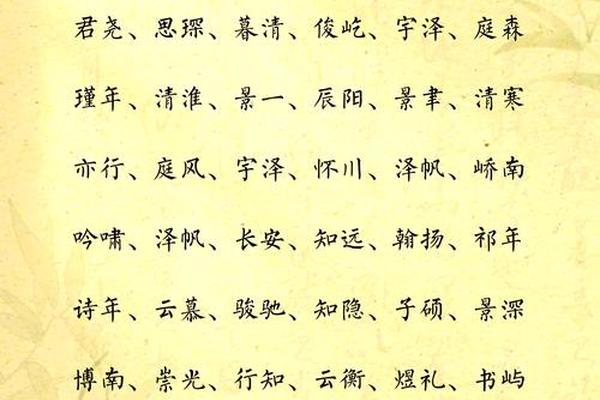 君尧、思琛、暮清、俊屹、宇泽、庭森
瑾年、清淮、景一、辰阳、景聿、清寒
亦行、庭风、宇泽、怀川、泽帆、峤南
吟啸、泽帆、长安、知远、翰扬、祁年
诗年、云慕、骏驰、知隐、子硕、景深
博南、崇光、行知、云衡、煜礼、书屿